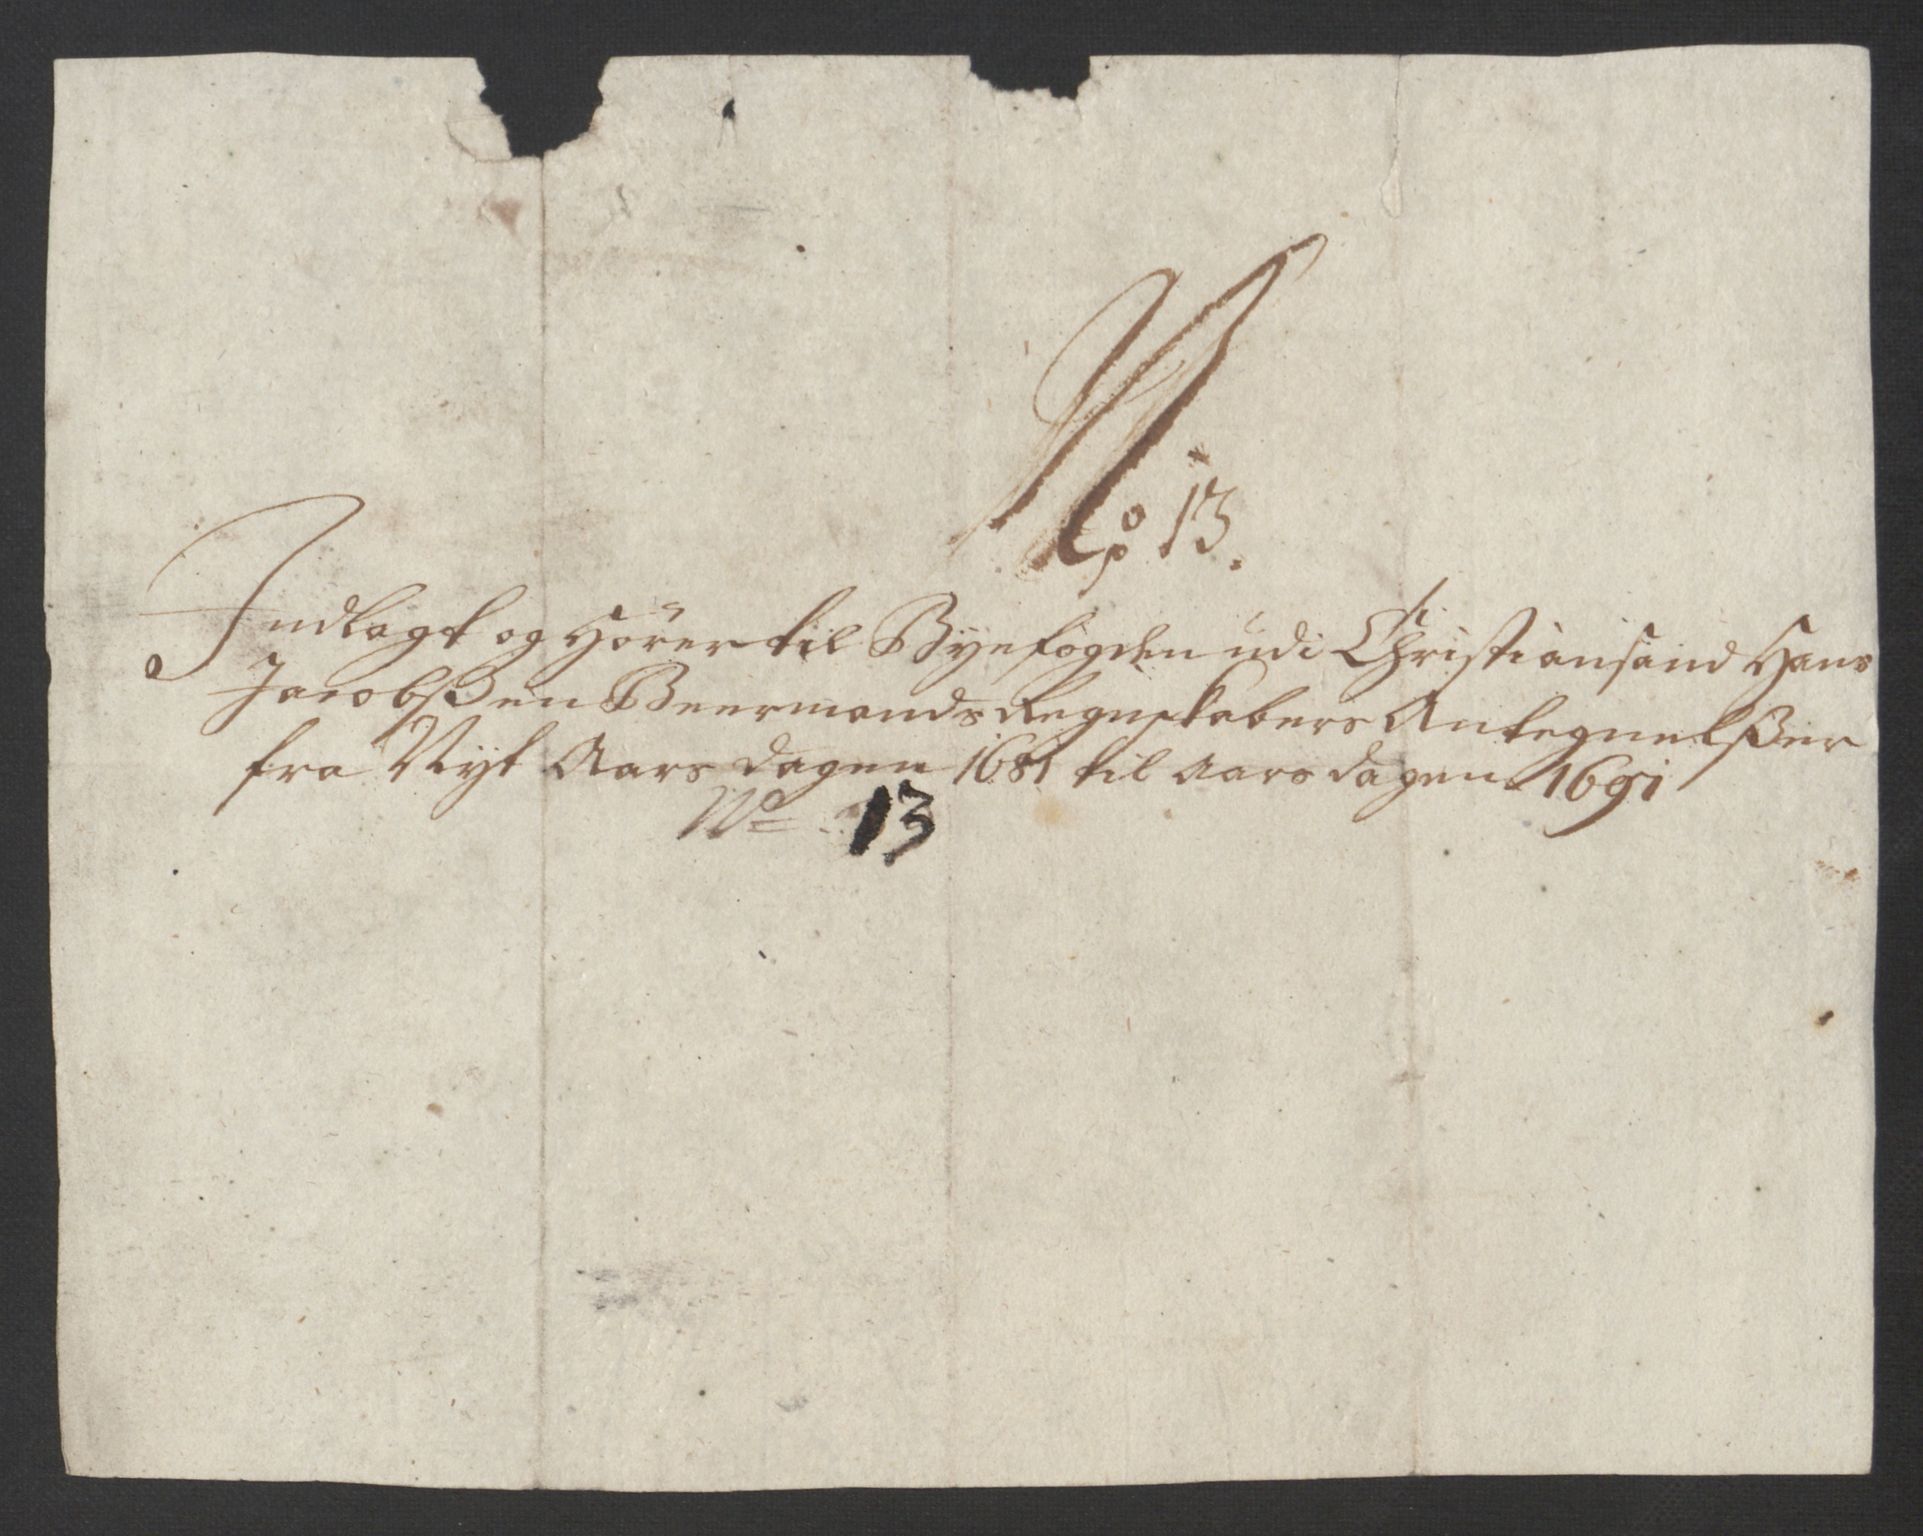 No 13.
Indlagt og Hörer til Byefogden udi Christiansand Hans
Jacobßen Beermands Regnskabers Antegnelßer
fra Nyt Aars dagen 1681 til Aarsdagen 1691
No 13